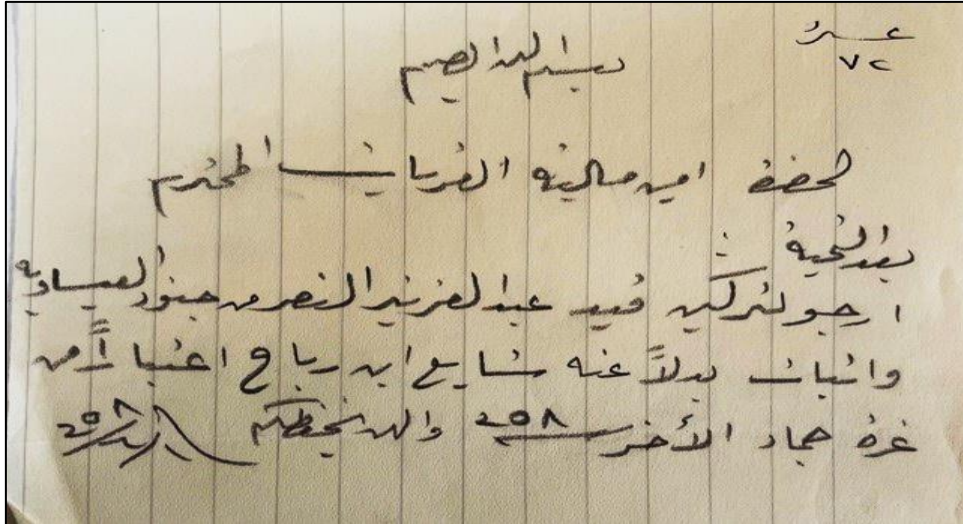 عدد
٧٢
بسم الله الرحمن الرحيم
لحضرة امين مالية القريات المحترم
بعد التحية
ارجو ترقين قيد عبدالعزيز النصر من جنود العيساويه
واثبات بدلاً عنه شايع ابن رباح اعتباراً من
غرة جماد الأخر ٣٥٨ والله يحفظكم